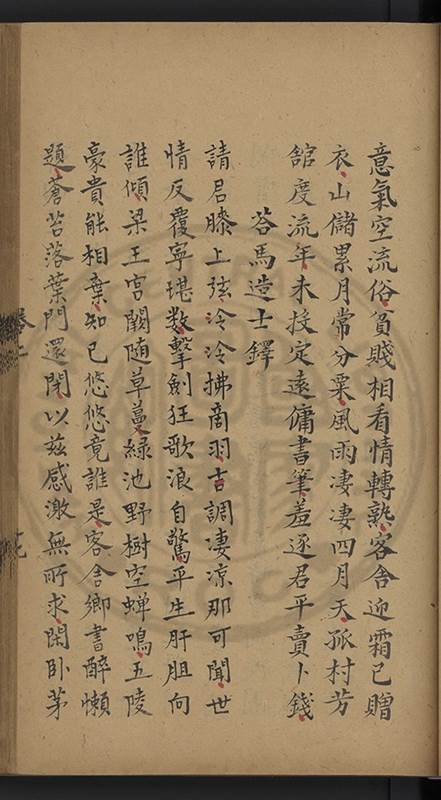 意氣空流俗貧賤相看情轉熟客舎迎霜已贈
衣山儲累月常分粟風雨凄凄四月天孤村芳
館度流年未投定遠傭書筆羞逐君平賣卜錢
荅馬造士鐸
請君膝上弦泠泠拂商羽古調凄凉那可聞世
情反覆寧堪數擊劍狂歌浪自驚平生肝胆向
誰傾梁王宮闕随草蔓綠池野樹空蟬鳴五陵
豪貴能相棄知己悠悠竟誰是客舎鄉書醉懶
題蒼苔落葉門還閉以兹感激無所求閑卧茅